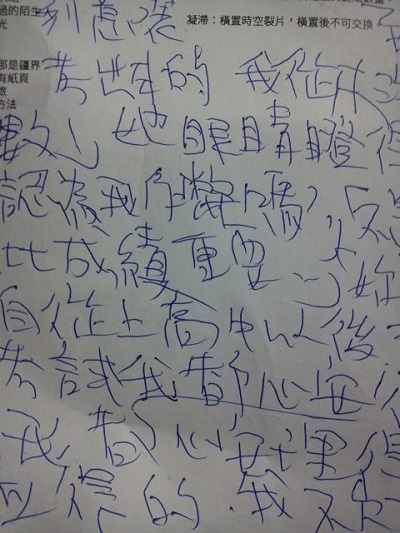 過的陌生
光
凝滯：橫置時空裂片，橫置後不可交換
那是疆界
有紙頁
旅
方法
考出來的 我從
數，她眼睛瞪得
認為我作弊嗎，
比成績重要 妳
自從上高中以後
考試我都心安
我都心安理得
應得的。我不